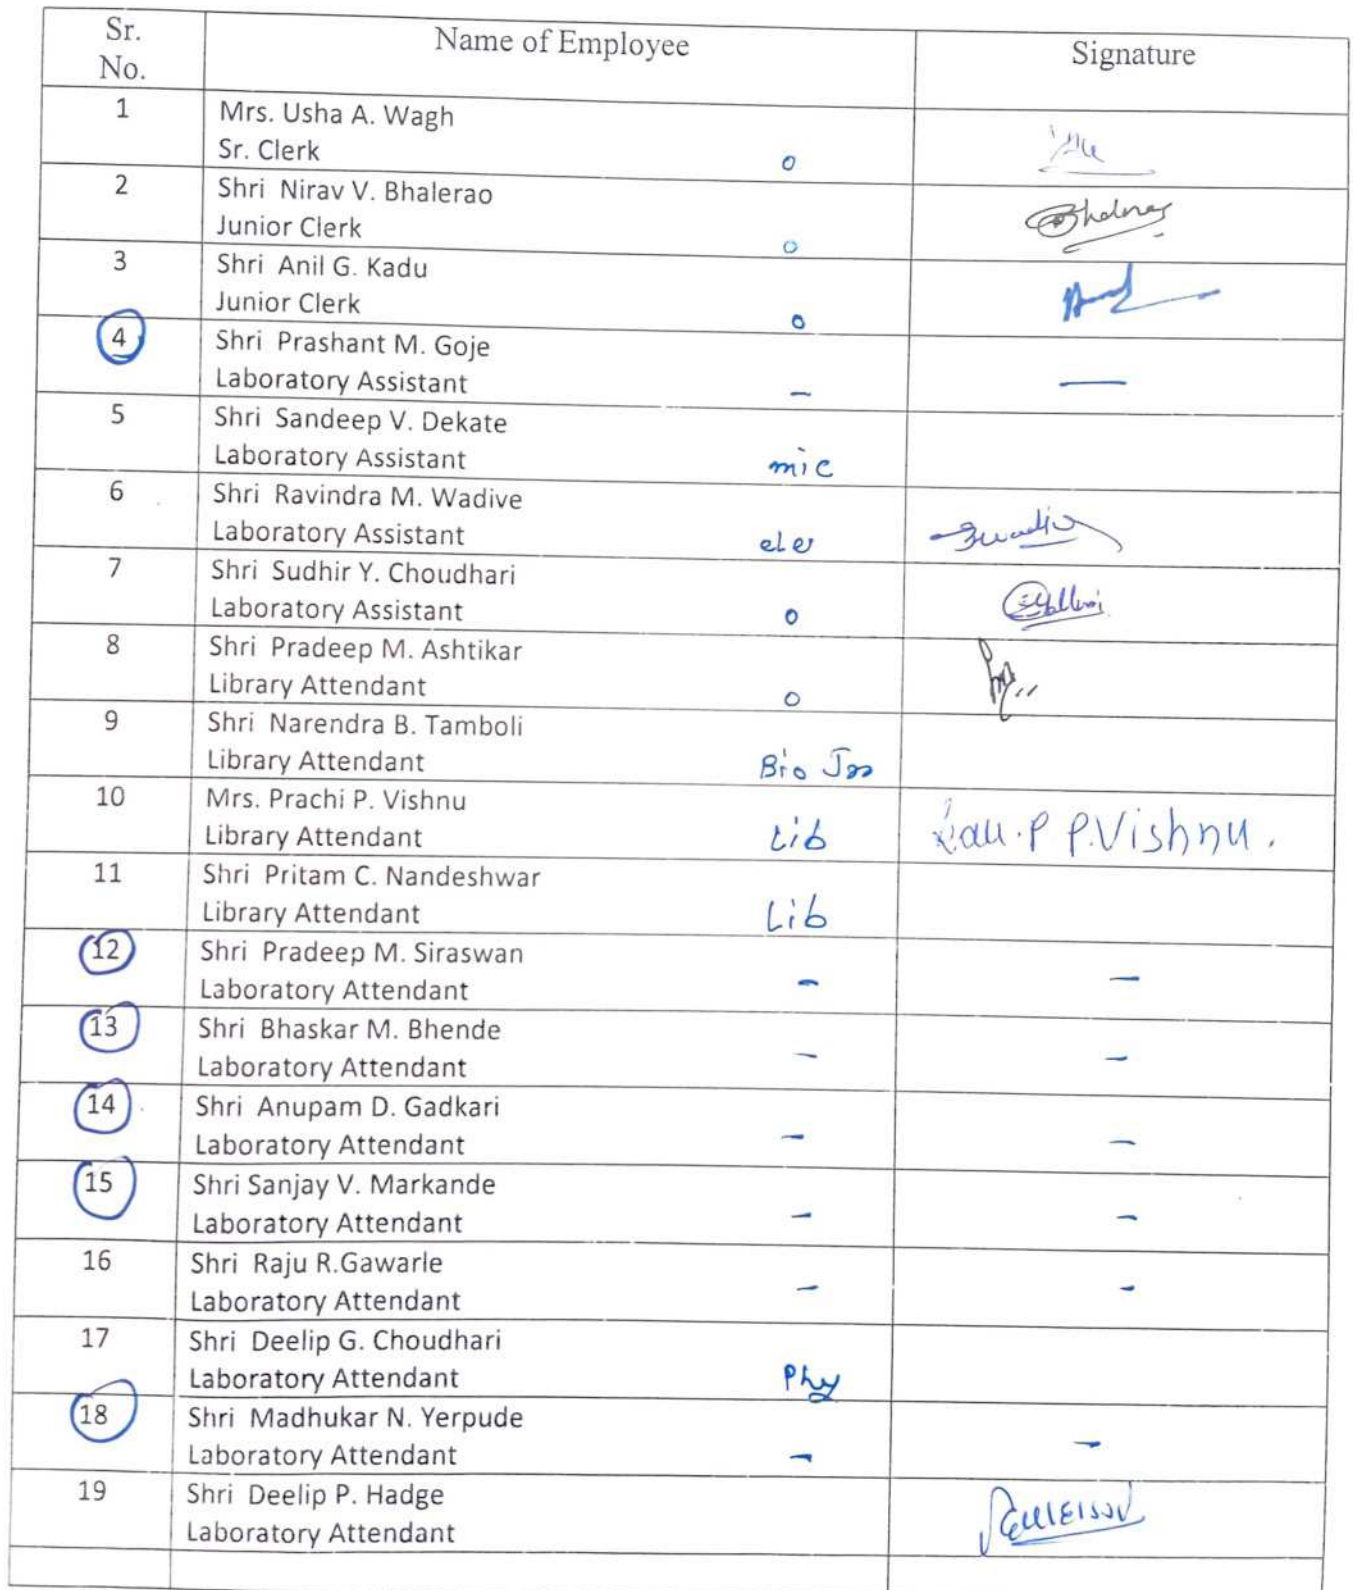 Sr. No. Name of Employee Signature
1 Mrs. Usha A. Wagh
Sr. Clerk o
2 Shri Nirav V. Bhalerao
Junior Clerk o
3 Shri Anil G. Kadu
Junior Clerk o
4 Shri Prashant M. Goje
Laboratory Assistant – —
5 Shri Sandeep V. Dekate
Laboratory Assistant mic
6 Shri Ravindra M. Wadive
Laboratory Assistant ele
7 Shri Sudhir Y. Choudhari
Laboratory Assistant o
8 Shri Pradeep M. Ashtikar
Library Attendant o
9 Shri Narendra B. Tamboli
Library Attendant Bio
10 Mrs. Prachi P. Vishnu
Library Attendant Lib P P.Vishnu.
11 Shri Pritam C. Nandeshwar
Library Attendant Lib
12 Shri Pradeep M. Siraswan
Laboratory Attendant – –
13 Shri Bhaskar M. Bhende
Laboratory Attendant – –
14 Shri Anupam D. Gadkari
Laboratory Attendant – –
15 Shri Sanjay V. Markande
Laboratory Attendant – –
16 Shri Raju R.Gawarle
Laboratory Attendant – –
17 Shri Deelip G. Choudhari
Laboratory Attendant Phy
18 Shri Madhukar N. Yerpude
Laboratory Attendant – –
19 Shri Deelip P. Hadge
Laboratory Attendant